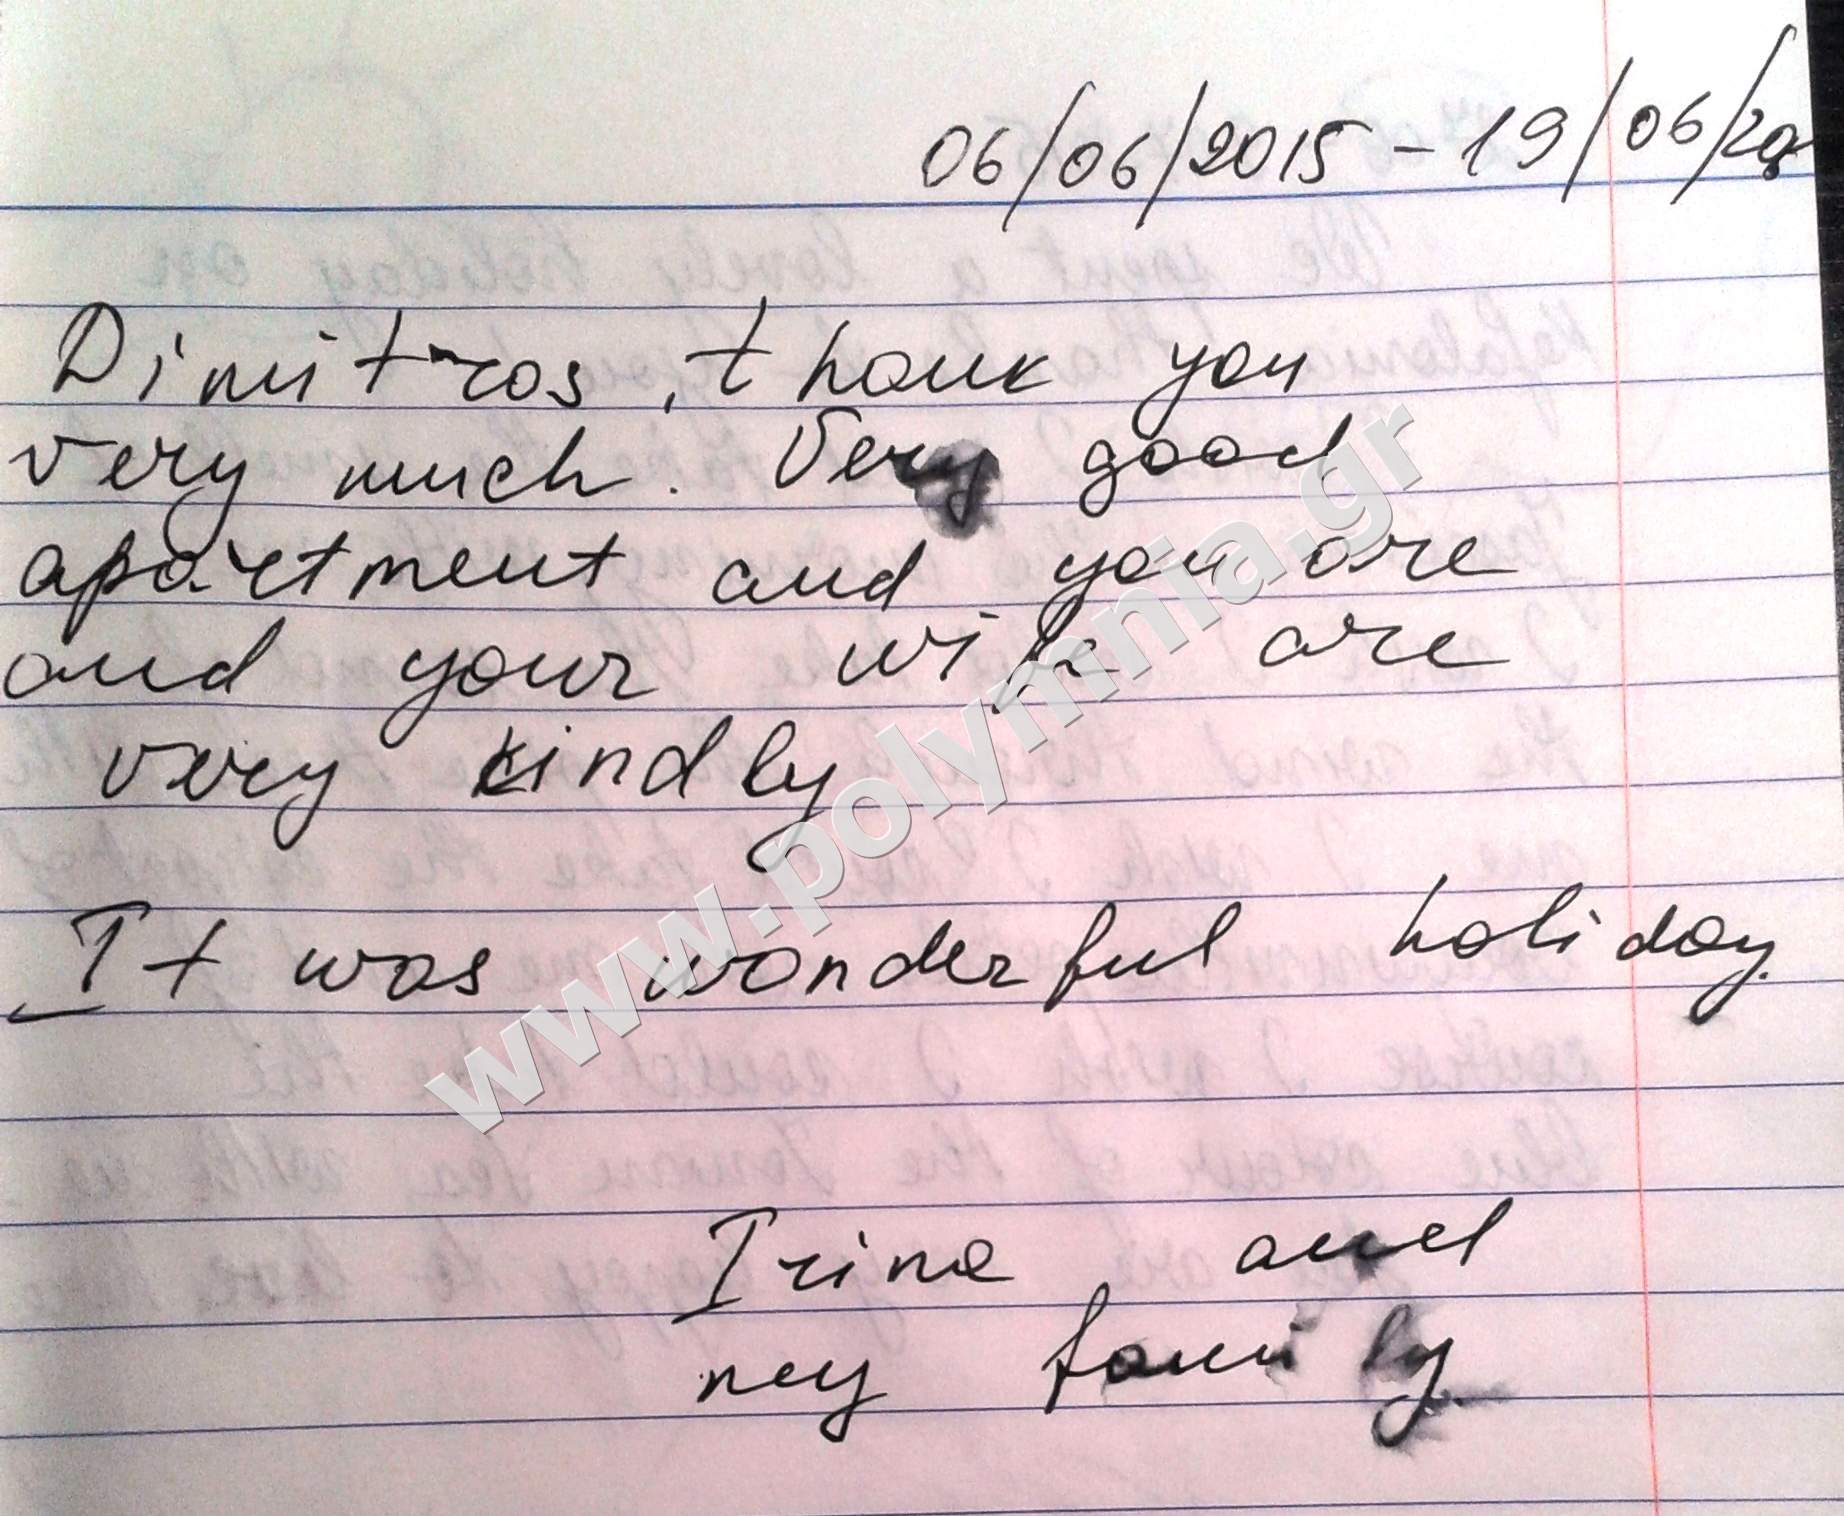 06/06/2015 - 19/06/20
Dimitros, thank you
very much. Very good
apartment and you are
and your wife are
very kindly
It was wonderful holiday.
Irina and
my family.
www.polymnia.gr